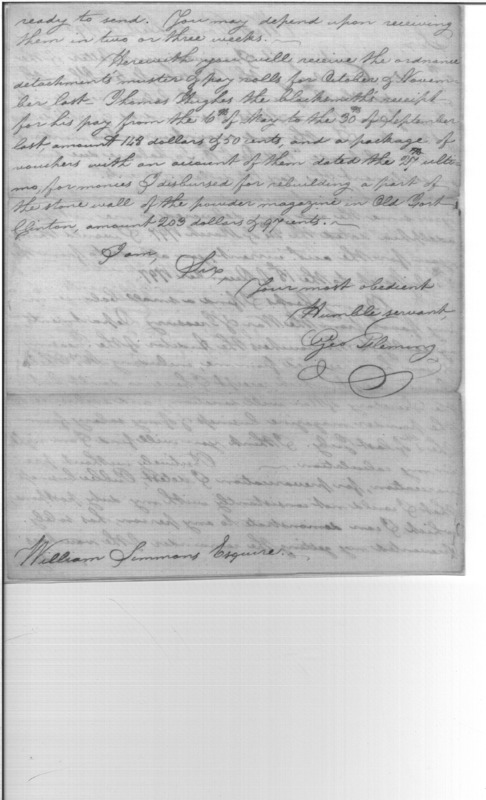 ready to send. You may depend upon receiving
them in two or three weeks.
Herewith you will receive the ordnance
detachments muster & pay rolls for October & Novem
ber last Thomas Hughes the blacksmiths receipt
for his pay from the 6th of May to the 30th of September
last, amount 148 dollars & 50 cents, and a package of
vouchers with an account of them dated the 27th ulti
mo, for monies I disbursed for rebuilding a part of
the stone wall of the powder magazine in Old Fort
Clinton, amount 203 dollars & 97 cents.
I am,
Sir,
Your most obedient
Humble servant,
Geo Fleming
William Simmons Esquire.